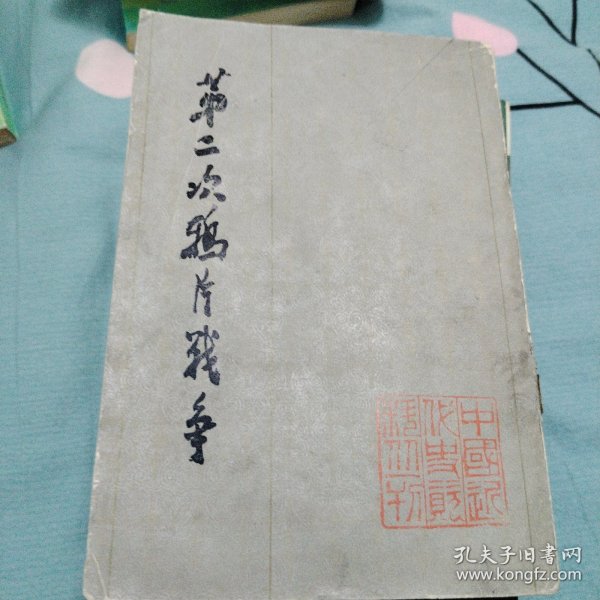 第二次鸦片战争
中國近
代史資
料叢刊
孔夫子旧书网
www.kongfz.com